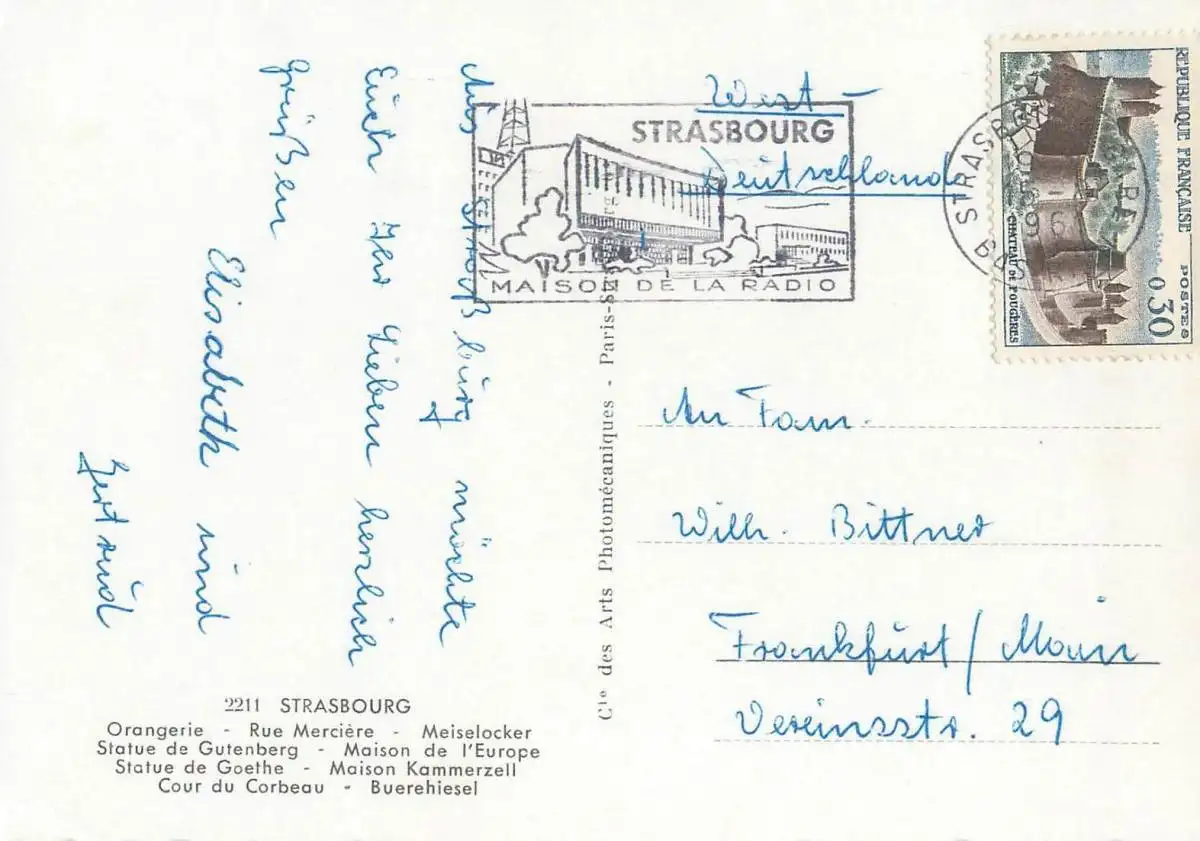 Aus Straßburg möchte
Euch Ihr Lieben herzlich
grüßen
Elisabeth und
Gertrud
2211 STRASBOURG
Orangerie - Rue Mercière - Meiselocker
Statue de Gutenberg - Maison de l'Europe
Statue de Goethe - Maison Kammerzell
Cour du Corbeau - Buerehiesel
Cie des Arts Photomécaniques - Paris-
STRASBOURG
MAISON DE LA RADIO
STRASBOURG GARE
REPUBLIQUE FRANÇAISE
POSTES
0,30
CHATEAU DE FOUGÈRES
West-
Deutschland
An Fam.
Wilh. Bittner
Frankfurt/Main
Vereinsstr. 29